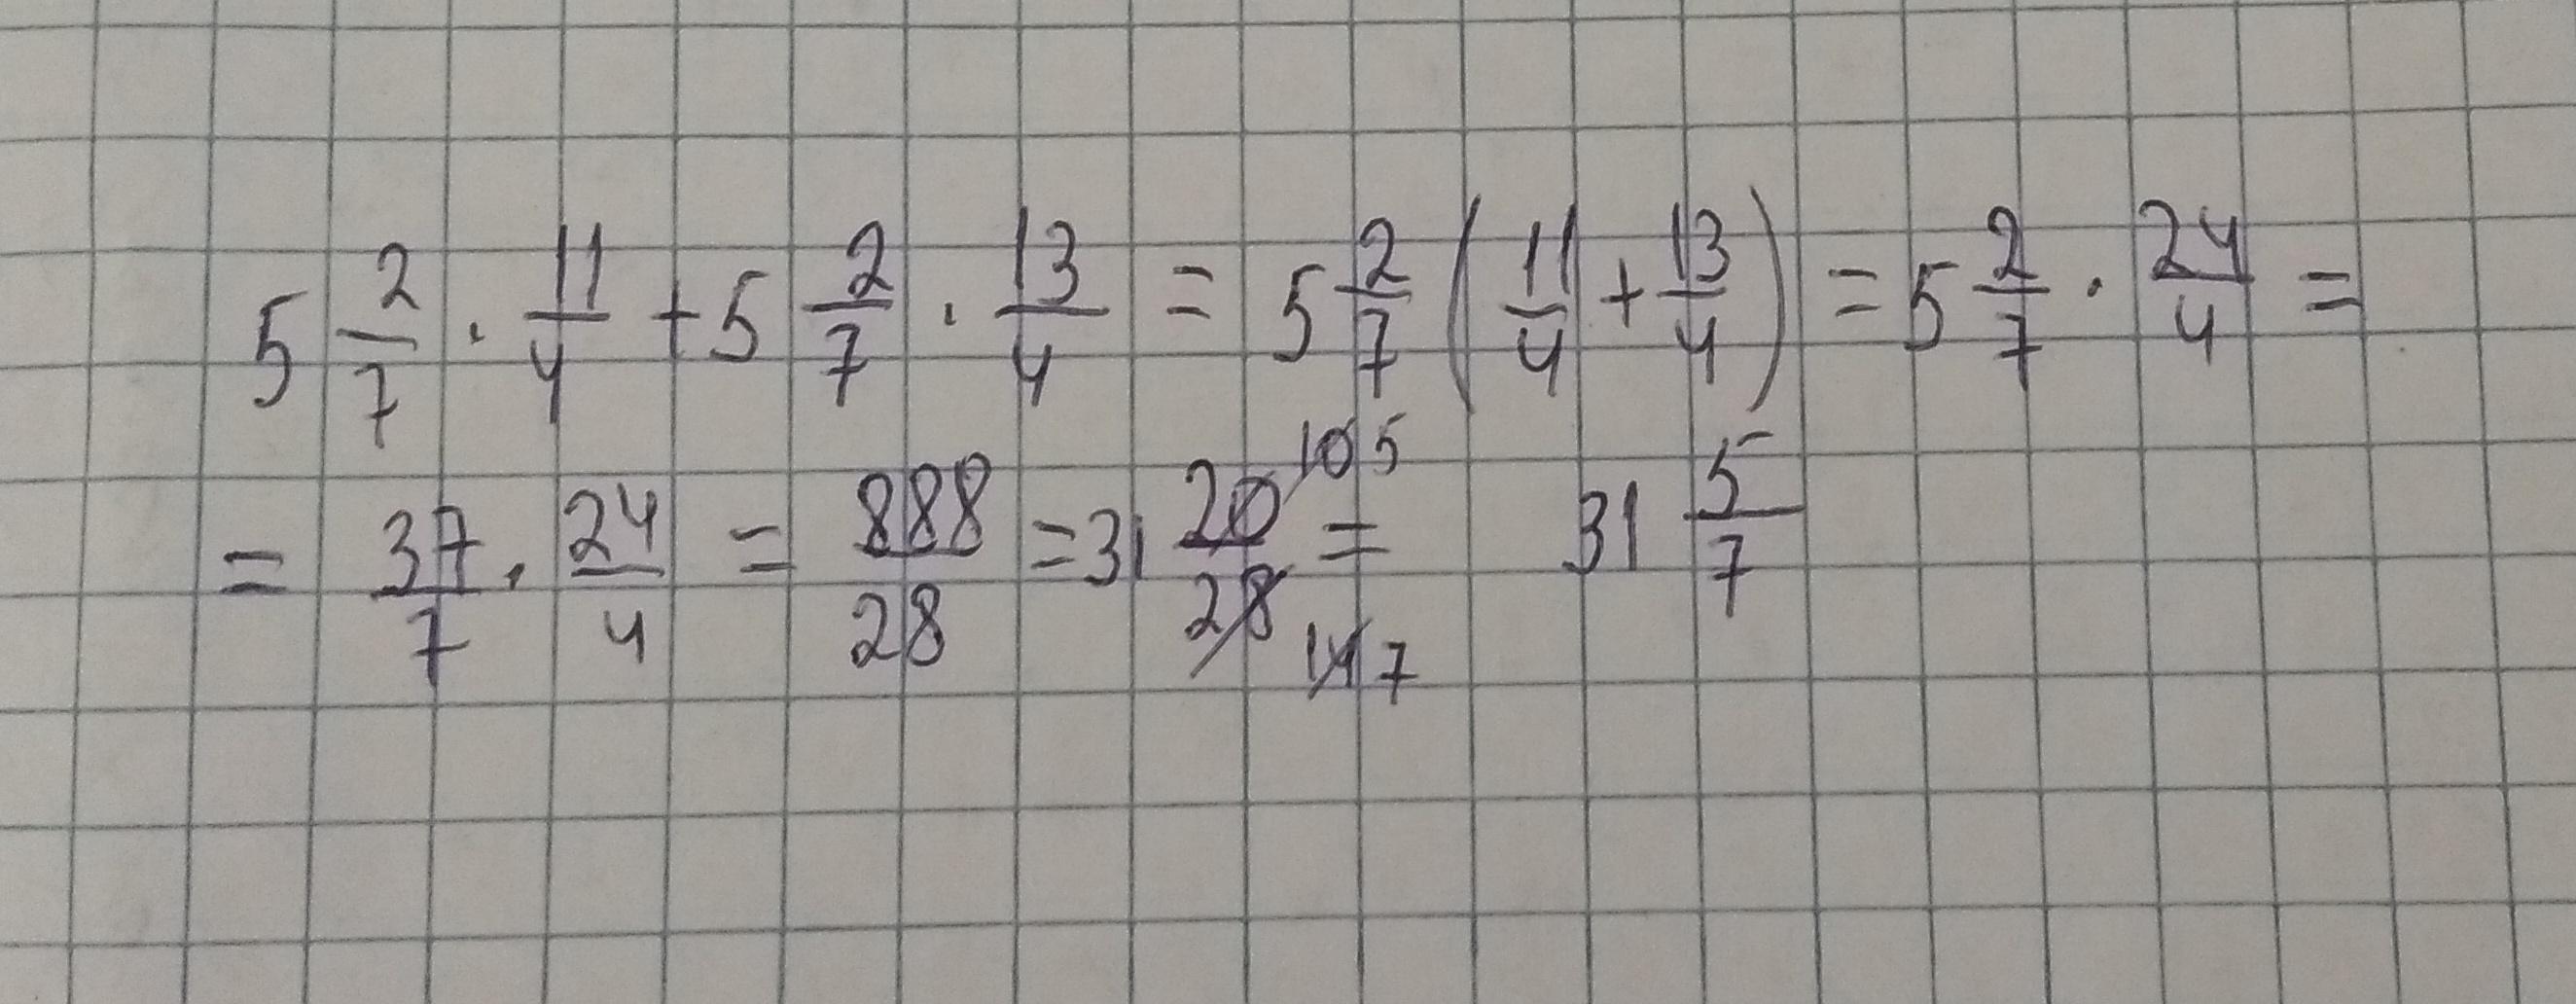 5 2/7 · 11/4 + 5 2/7 · 13/4 = 5 2/7 (11/4 + 13/4) = 5 2/7 · 24/4 =
= 37/7 · 24/4 = 888/28 = 31 20/28 10 5 14 7 = 31 5/7